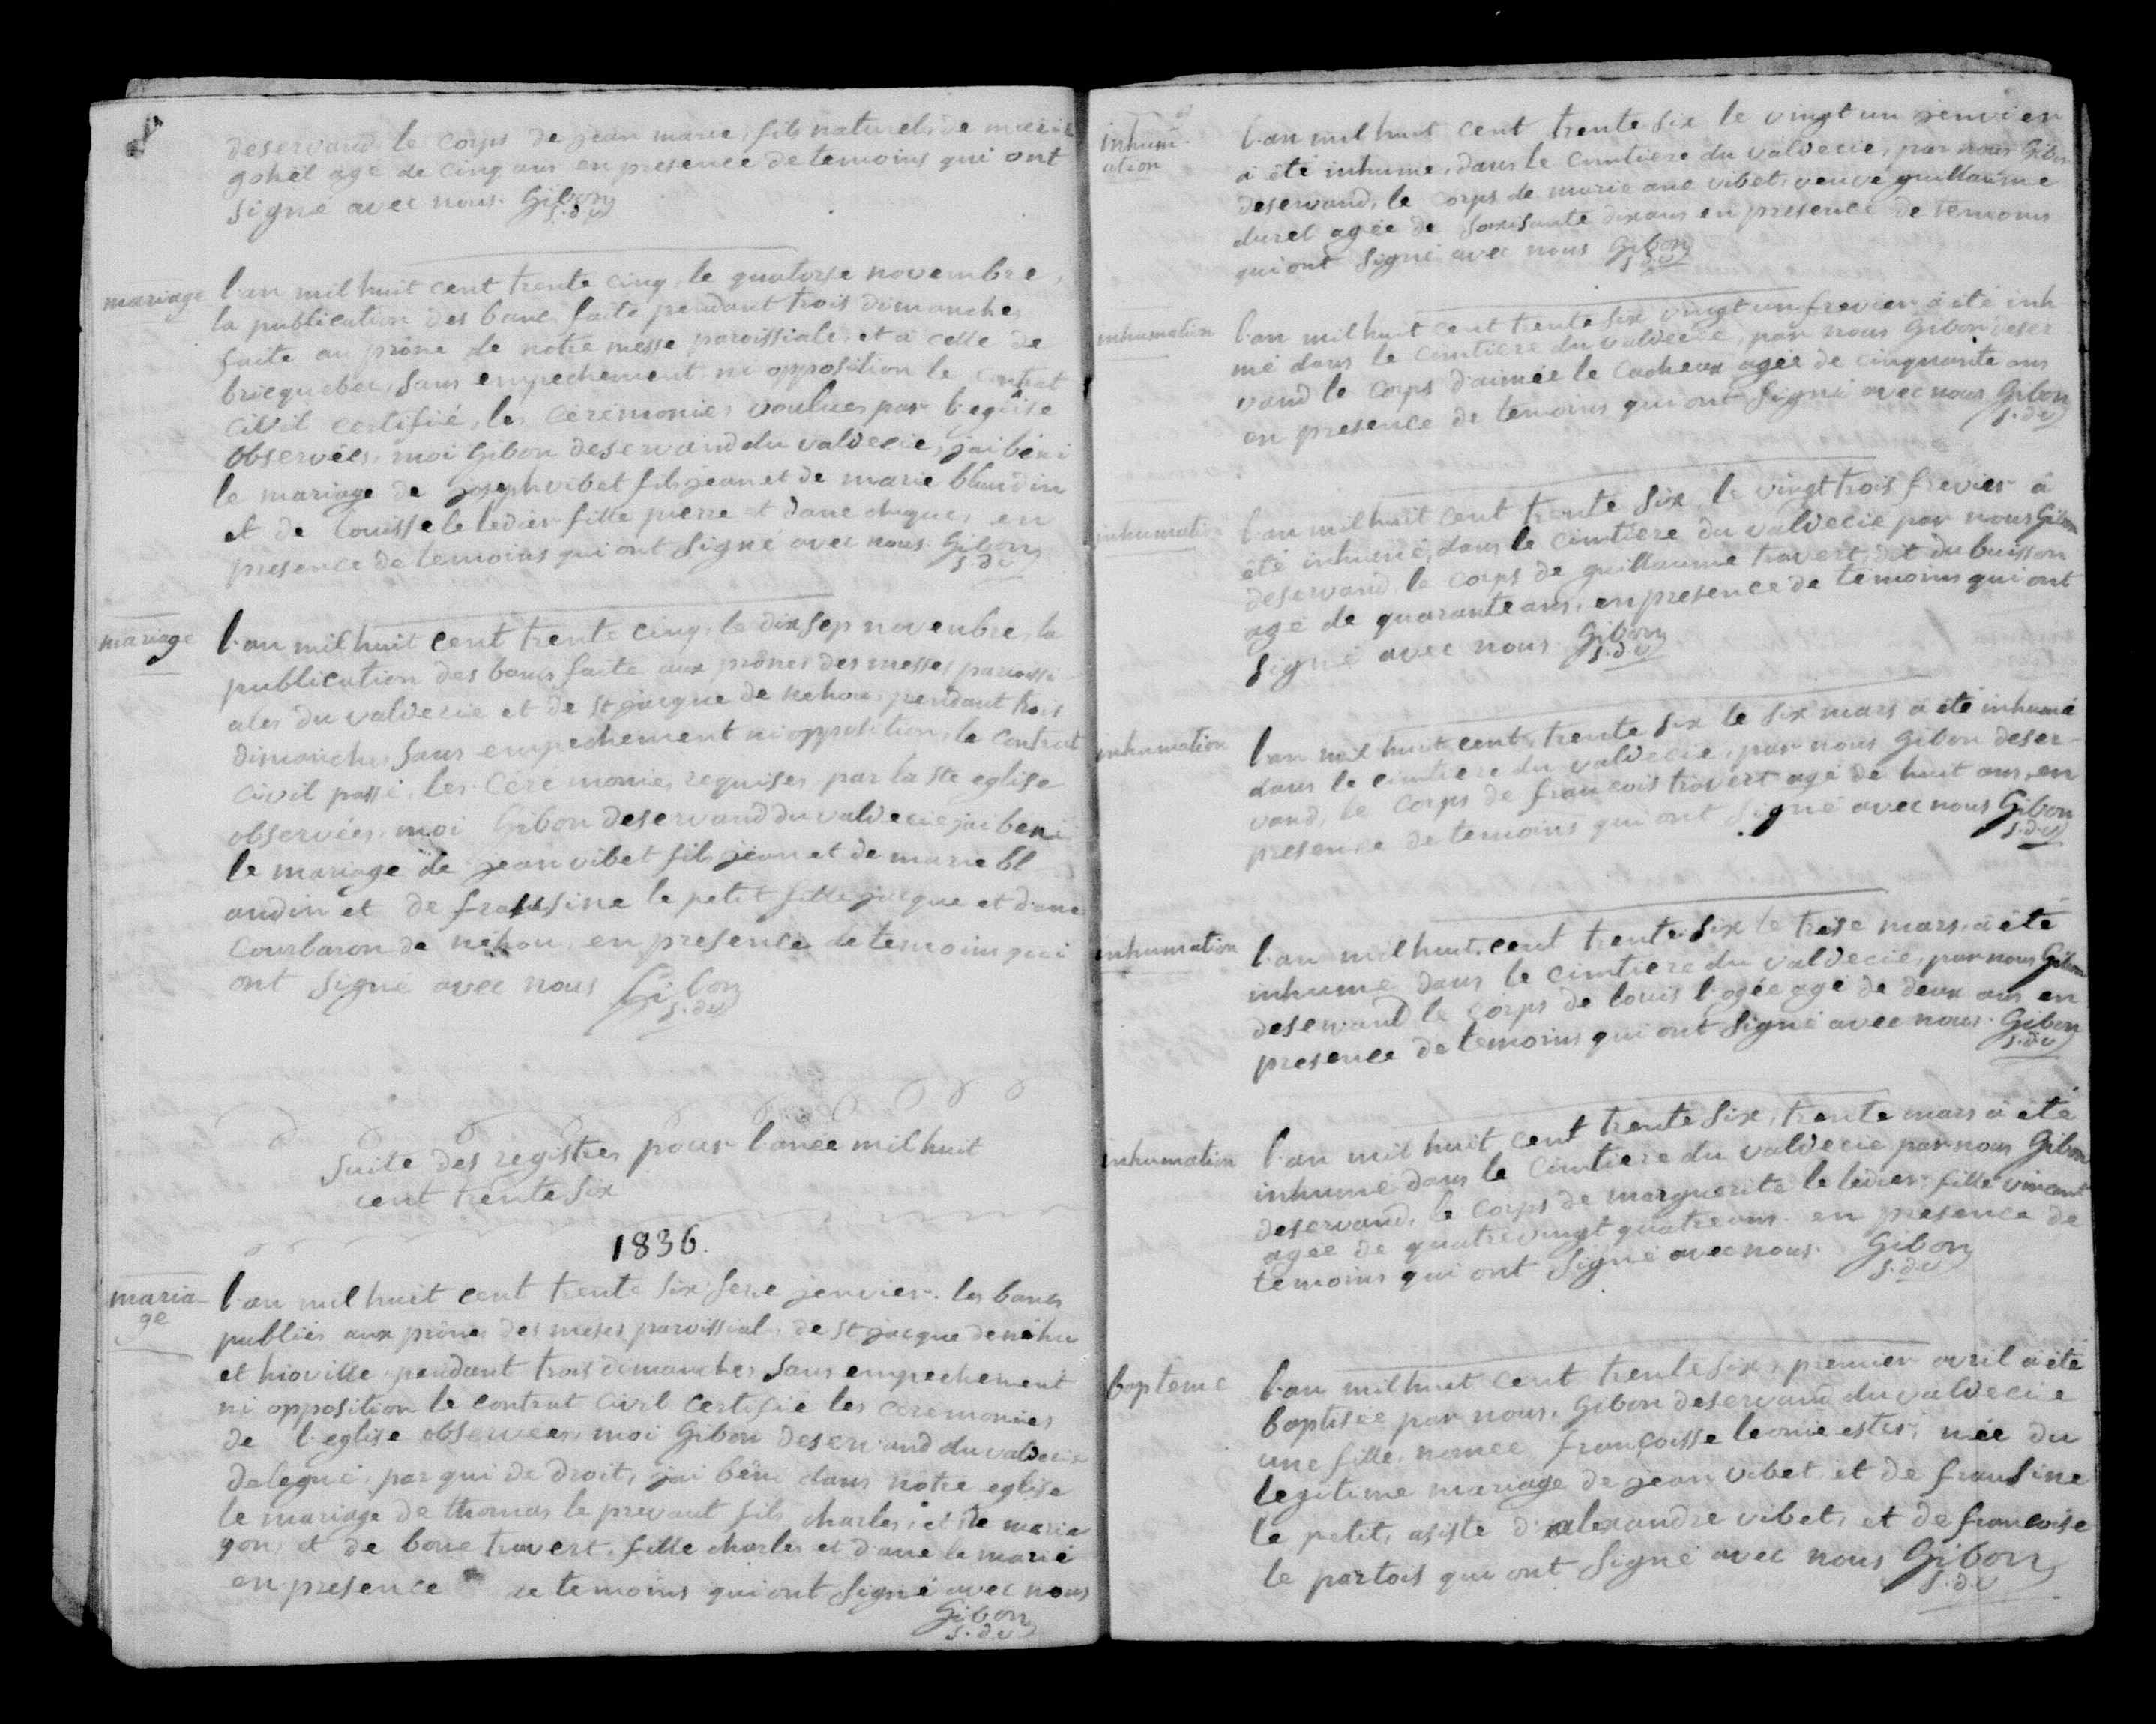 deservand, le corps de jean marie, fils naturel, de marie
gohel agé de cinq ans en presence de temoins qui ont
signé avec nous. Gibon
s.d.v
mariage
l'an mil huit cent trente cinq, le quatorse novembre,
la publication des bancs faite pendant trois dimanches
faite au prône de notre messe paroissiale, et à celle de
bricquebec, sans empechement ni opposition le contrat
civil certifié, les cérémonies voulues par l'eglise
observées, moi Gibon deservand du valdecie, jai béni
le mariage de joseph vibet fils jean et de marie blandin
et de Louisse le ledier fille pierre et d'ane duques, en
presence de temoins qui ont signé avec nous. Gibon
s.d.v
mariage
l'an mil huit cent trente cinq, le dix sep novenbre, la
publication des bancs faite aux prônes des messes paroissi
ales du valdecie et de st jacque de nehou, pendant trois
dimanches sans empechement ni opposition, le contrat
civil passé, les cérémonies requises par la ste eglise
observées, moi Gibon deservand du valdecie jai beni
le mariage de jean vibet fils jean et de marie bl
andin et de fransine le petit fille jacque et d'ane
courbaron de néhou, en presence de temoins qui
ont signé avec nous Gibon
s.d.v
suite des registres pour l'anée mil huit
cent trente six
1836.
maria-
ge
l'an mil huit cent trente six sese jenvier. les bancs
publiés aux prônes des meses paroissial, de st jacque de néhu
et hioville, pendant trois dimanches sans empechement
ni opposition le contrat civil certifié les ceremonies
de l'eglise observées, moi Gibon deservand du valdecie
delegué, par qui de droit, jai béni dans notre eglise
le mariage de thomas le prevaut fils charles, et de marie
yon, et de bone travert, fille charles et d'ane le marié
en presence de temoins qui ont signé avec nous
Gibon
s.d.v
inhum-
ation
l'an mil huit cent trente six le vingt un jenvier
à été inhumé, dans le cimtiere du valdecie, par nous Gibon
deservand, le corps de marie ane vibet, veuve guillaume
durel agée de soixsante dix ans en presence de temoins
qui ont signé avec nous Gibon
s.d.v
inhumation
l'an mil huit cent trente six vingt un frevier à été inh
mé dans le cimtiere du valdecie, par nous Gibon deser
vand le corps d'aimée le cacheux agée de cinquante ans
en presence de temoins qui ont signé avec nous Gibon
s.d.v
inhumation
l'an mil huit cent trente six, le vingt trois frevier à
été inhumé, dans le cimtiere du valdecie par nous Gibon
deservand, le corps de guillaume travert, dit du buisson
agé de quarante ans, en presence de temoins qui ont
signé avec nous. Gibon
s.d.v
inhumation
l'an mil huit cent, trente six le six mars à été inhumé
dans le cimtiere du valdecie, par nous Gibon deser-
vand, le corps de francois travert agé de huit ans, en
presence de temoins qui ont signé avec nous Gibon
s.d.v
inhumation
l'an mil huit cent trente six le treise mars, à été
inhumé dans le cimtiere du valdecie, par nous Gibon
deservand le corps de louis l'ogée agé de deux ans en
presence de temoins qui ont signé avec nous. Gibon
s.d.v
inhumation
l'an mil huit cent trente six, trente mars à été
inhumé dans le cimtiere du valdecie par nous Gibon
deservand, le corps de marguerite le ledier, fille vincent
agée de quatre vingt quatre ans. en presence de
temoins qui ont signé avec nous. Gibon
s.d.v
bapteme
l'an mil huit cent trente six, premier avril à été
baptisée par nous, Gibon deservand du valdecie
une fille, nomée francoisse leonie ester, née du
legitime mariage de jean vibet, et de fransine
le petit, asiste d'alexandre vibet, et de francoise
le partois qui ont signé avec nous Gibon
s.d.v